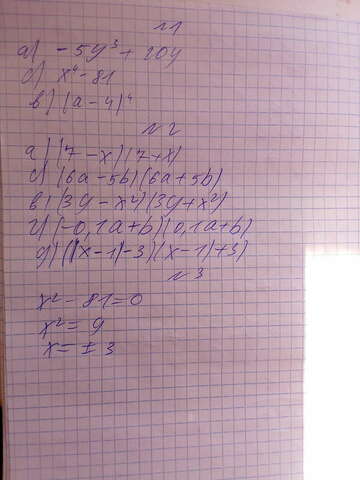 №1
а) -5y³ + 20y
б) x⁴ - 81
в) (a - 4)⁴
№2
а) (7 - x)(7 + x)
б) (6a - 5b)(6a + 5b)
в) (3y - x²)(3y + x²)
г) (-0,1a + b)(0,1a + b)
д) ((x - 1) - 3)(x - 1) + 3)
№3
x² - 81 = 0
x² = 9
x = ± 3